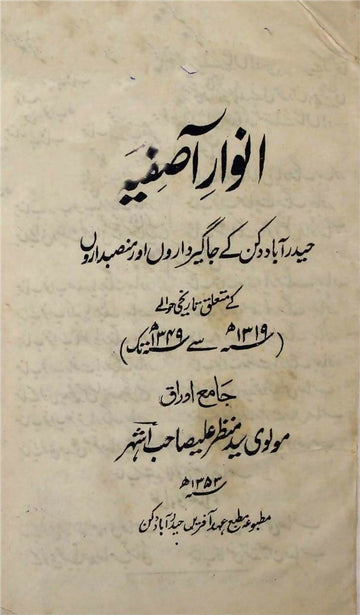 انوارِ آصفیہ
حیدرآباد دکن کے جاگیرداروں اور منصبداروں
کے متعلق تاریخی حوالے
(۱۳۱۹ھ سے ۱۳۴۹ھ تک)
جامع اوراق
مولوی سید منظر علی صاحب اشہر
۱۳۵۳ھ
مطبوعہ مطبع عہد آفریں حیدرآباد دکن